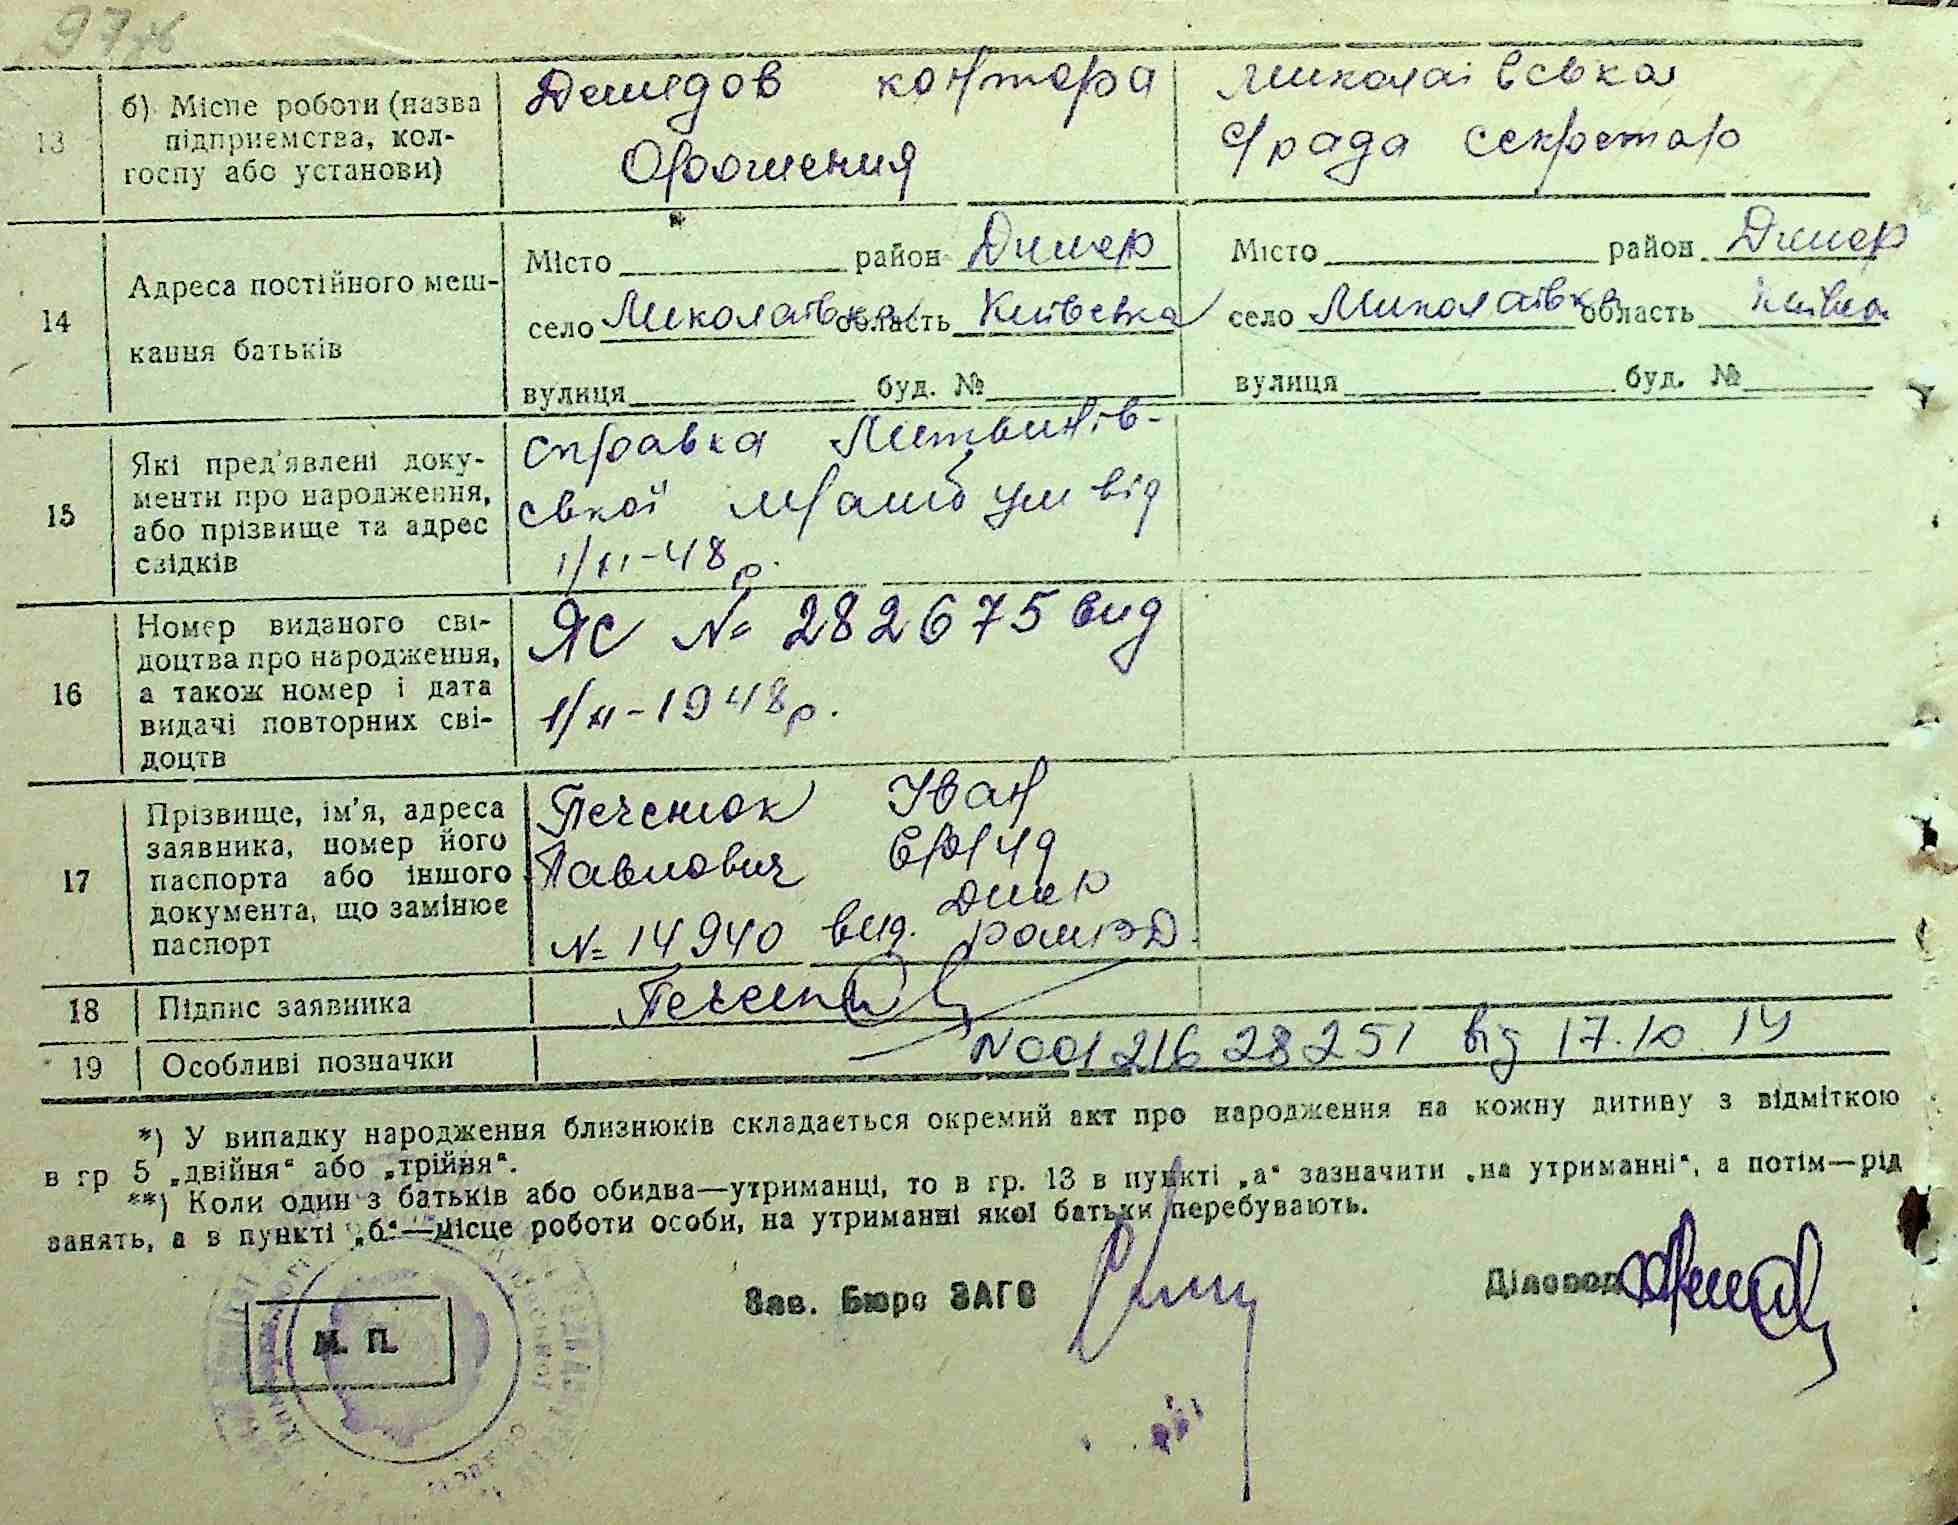 97
13
б) Місце роботи (назва
підприємства, кол-
госпу або установи)
Демидов контора
Орошения
Миколаївська
с/рада секретар
14
Адреса постійного меш-
кання батьків
Місто район Димер
село Миколаївка область Київська
вулиця буд. №
Місто район Димер
село Миколаївк область
вулиця буд. №
15
Які пред'явлені доку-
менти про народження,
або прізвище та адрес
свідків
справка Литвинів-
ської від
1/XI-48 р.
16
Номер виданого сві-
доцтва про народження,
а також номер і дата
видачі повторних сві-
доцтв
ЯС № 282675 вид
1/XI-1948 р.
17
Прізвище, ім'я, адреса
заявника, номер його
паспорта або іншого
документа, що замінює
паспорт
Печенюк Іван
Павлович
Димер
№ 14940 вид.
18
Підпис заявника
19
Особливі позначки
N00121628251 від 17.10.14
*) У випадку народження близнюків складається окремий акт про народження на кожну дитину з відміткою
в гр 5 „двійня“ або „трійня“.
**) Коли один з батьків або обидва—утриманці, то в гр. 13 в пункті „а“ зазначити „на утриманні“, а потім—рід
занять, а в пункті „б“—місце роботи особи, на утриманні якої батьки перебувають.
М. П.
Зав. Бюро ЗАГС
Діловод